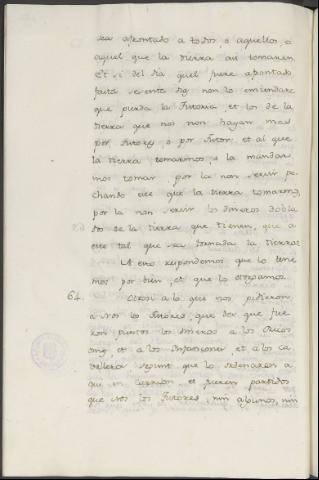 sea afrontado a todos, ó aquellos, ó
aquel que la tierra asi tomaren
Et si del dia quel fuere afrontado
fasta sesenta dias, non lo emendare
que pierda la Tutoria, et los de la
tierra que nos non hayan mas
por Tutores, ó por Tutor, et al que
la tierra tomaremos ó la mandar
mos tomar por la non servir pe
chando

que la tierra tomaron,
por la non servir los dineros dobla
dos de la tierra que tienen, que a
este tal que sea tornada la tierra:
A esto respondemos que lo tene
mos por bien, et que lo otorgamos.
64. Otrosi a lo que nos pidieron
a Nos los Tutores, que
que fue
ron puestos los dineros a los Ricos
omes, et a los Infanzones, et a los ca
valleros segunt que lo ordenaren a
qui en Carrion et fueren partidos
que Nos los Tutores, nin algunos, nin